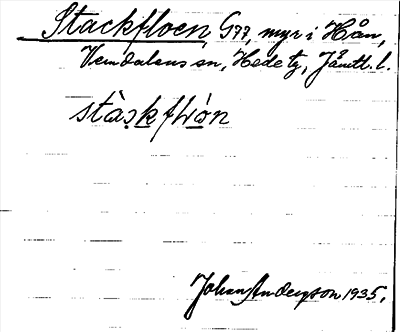 Stackfloen, G77, myr i Hån,
Vemdalens sn, Hede tg, Jämtl. l.
stàskflón
Johan Anderson 1935.